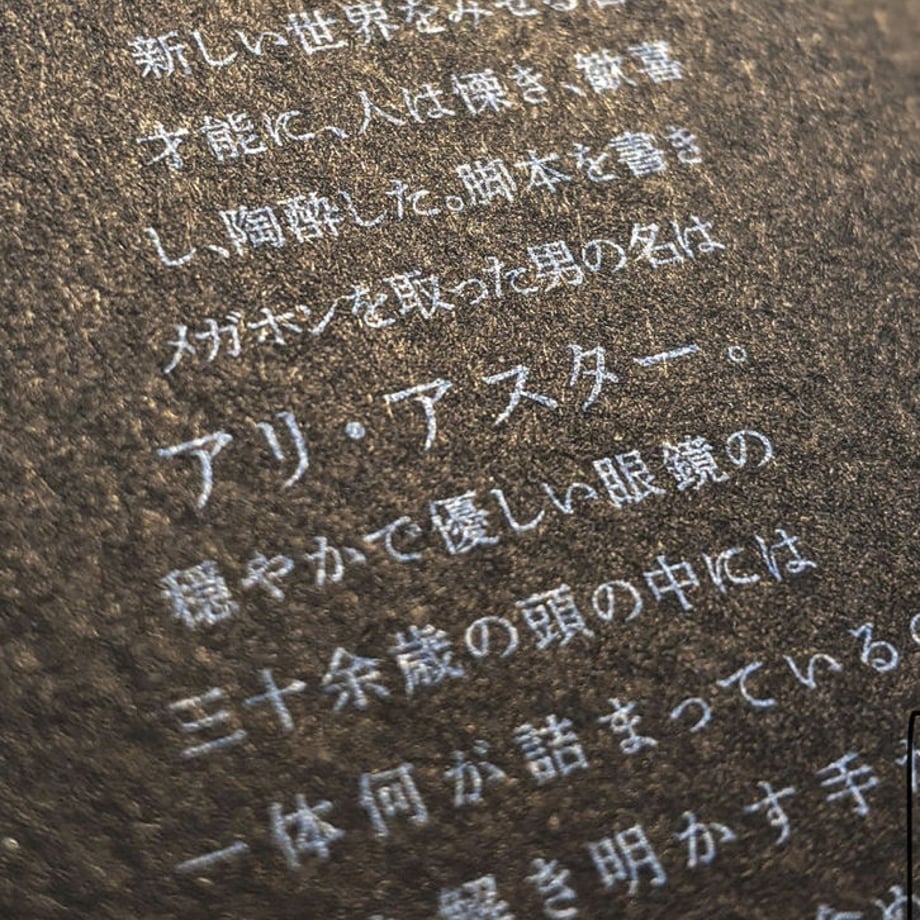 新しい世界をみせる
才能に、人は慄き、歓喜
し、陶酔した。脚本を書き
メガホンを取った男の名は
アリ・アスター。
穏やかで優しい眼鏡の
三十余歳の頭の中には
一体何が詰まっている
解き明かす手